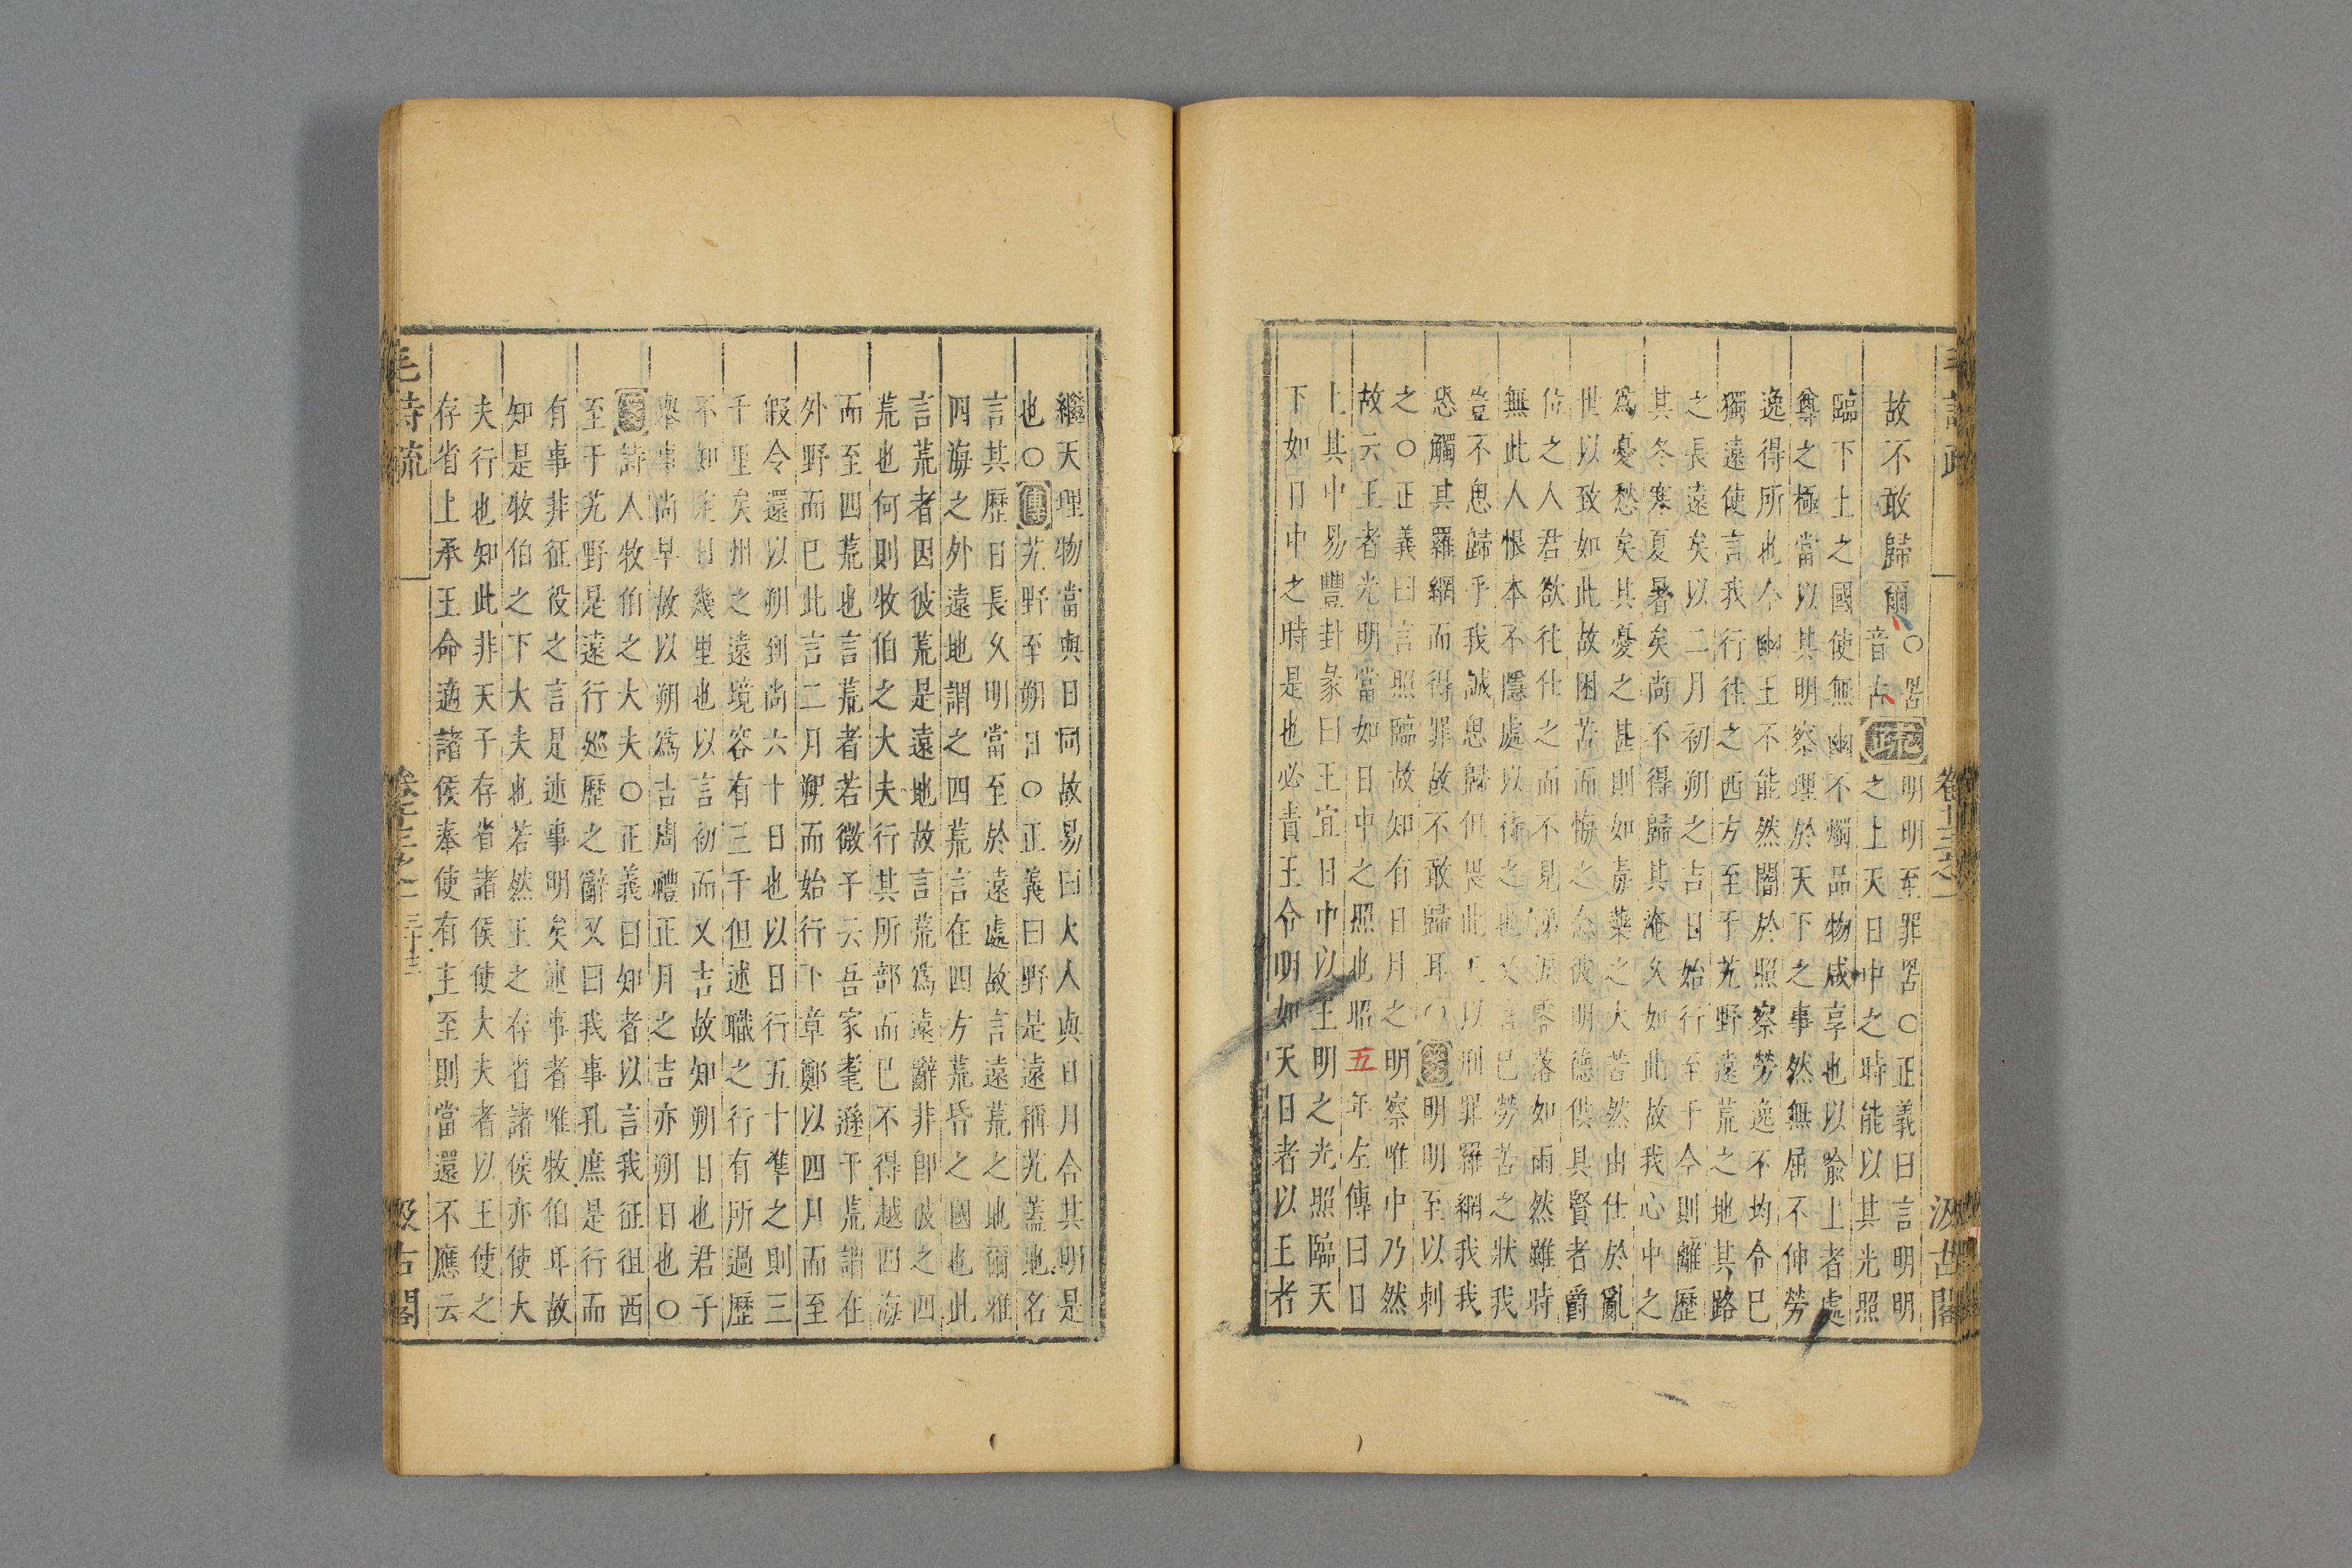 毛詩疏 卷十三之一 汲古閣
故不敢歸爾○罟音古疏明明至罪罟○正義曰言明明
之上天日中之時能以其光照
臨下土之國使無幽不燭品物咸享也以喻上者處
尊之極當以其明察理於天下之事然無屈不伸勞
逸得所也今幽王不能然闇於照察勞逸不均令已
獨遠使言我行往之西方至于艽野遠荒之地其路
之長遠矣以二月初朔之吉日始行至于今則離歷
其冬寒夏暑矣尚不得歸其淹久如此故我心中之
爲憂愁矣其憂之甚則如毒藥之大苦然由仕於亂
世以致如此故困苦而悔之念彼明德供具賢者爵
位之人君欲往仕之而不見涕淚零落如雨然雖時
無此人恨本不隱處以待之也又言已勞苦之狀我
豈不思歸乎我誠思歸但畏此王以刑罪羅網我我
恐觸其羅網而得罪故不敢歸耳○箋明明至以刺
之○正義曰言照臨故知有日月之明察唯中乃然
故云王者光明當如日中之照也昭五年左傳曰日
上其中易豐卦彖曰王宜日中以王明之光照臨天
下如日中之時是也必責王令明如天日者以王者
繼天理物當與日同故易曰大人與日月合其明是
也○傳艽野至朔日○正義曰野是遠稱艽蓋地名
言其歷日長久明當至於遠處故言遠荒之地爾雅
四海之外遠地謂之四荒言在四方荒昏之國也此
言荒者因彼荒是遠地故言荒爲遠辭非卽彼之四
荒也何則牧伯之大夫行其所部而已不得越四海
而至四荒也言荒者若微子云吾家耄遜于荒謂在
外野而已此言二月朔而始行下章鄭以四月而至
假令還以朔到尚六十日也以日行五十準之則三
千里矣州之遠境容有三千但述職之行有所過歷
不知定日幾里也以言初而又吉故知朔日也君子
舉事尚早故以朔爲吉周禮正月之吉亦朔日也○
箋詩人牧伯之大夫○正義曰知者以言我征徂西
至于艽野是遠行巡歷之辭又曰我事孔庶是行而
有事非征役之言是述事明矣述事者唯牧伯耳故
知是牧伯之下大夫也若然王之存省諸侯亦使大
夫行也知此非天子存省諸侯使大夫者以王使之
存省上承王命適諸侯奉使有主至則當還不應云
毛詩疏 卷十三之一 三十三 汲古閣